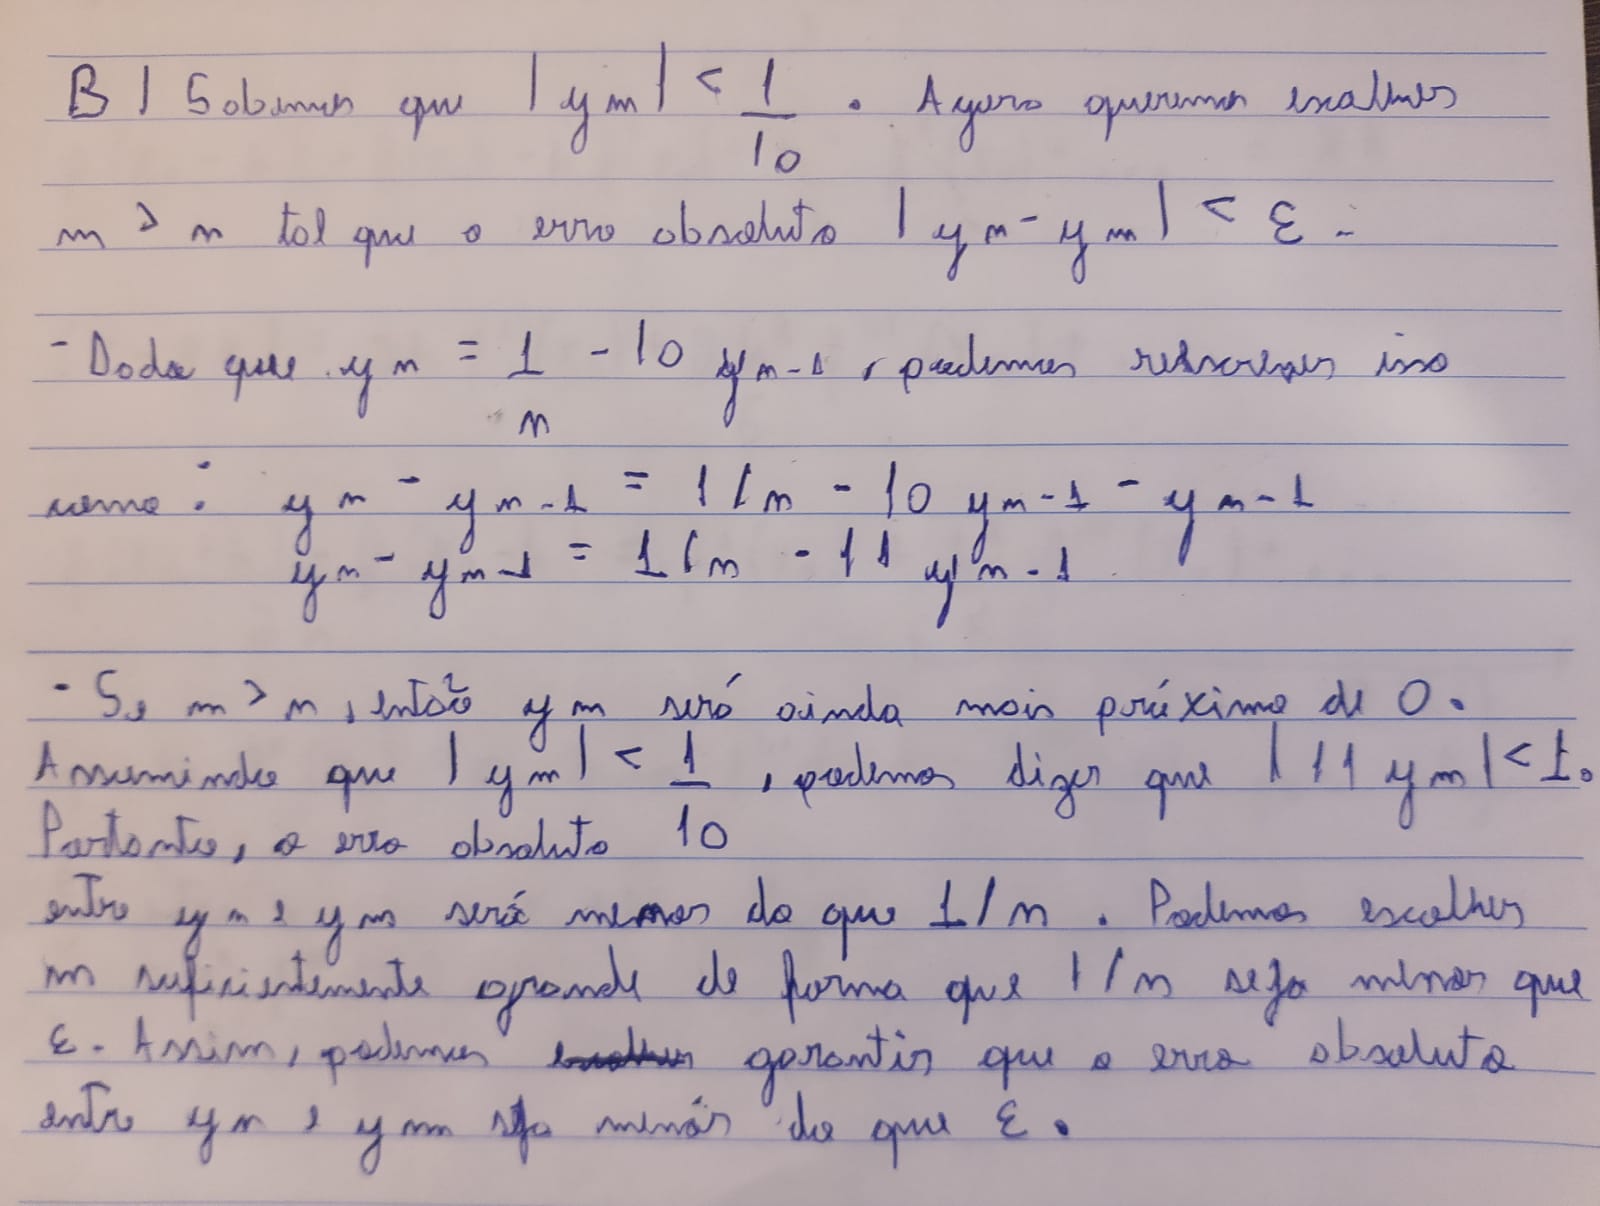 B | Sabemos que |ym| < 1/10 . Agora queremos escolher
m > n tal que o erro absoluto |yn - ym| < ε.
- Dado que yn = 1/n - 10 yn-1, podemos reescrever isso
como: yn - yn-1 = 1/n - 10 yn-1 - yn-1
yn - yn-1 = 1/n - 11 yn-1
- Se m > n, então ym será ainda mais próximo de 0.
Assumindo que |ym| < 1/10, podemos dizer que |11 ym| < 1.
Portanto, o erro absoluto
entre yn e ym será menor do que 1/n. Podemos escolher
m suficientemente grande de forma que 1/n seja menor que
ε. Assim, podemos garantir que o erro absoluto
entre yn e ym seja menor do que ε.